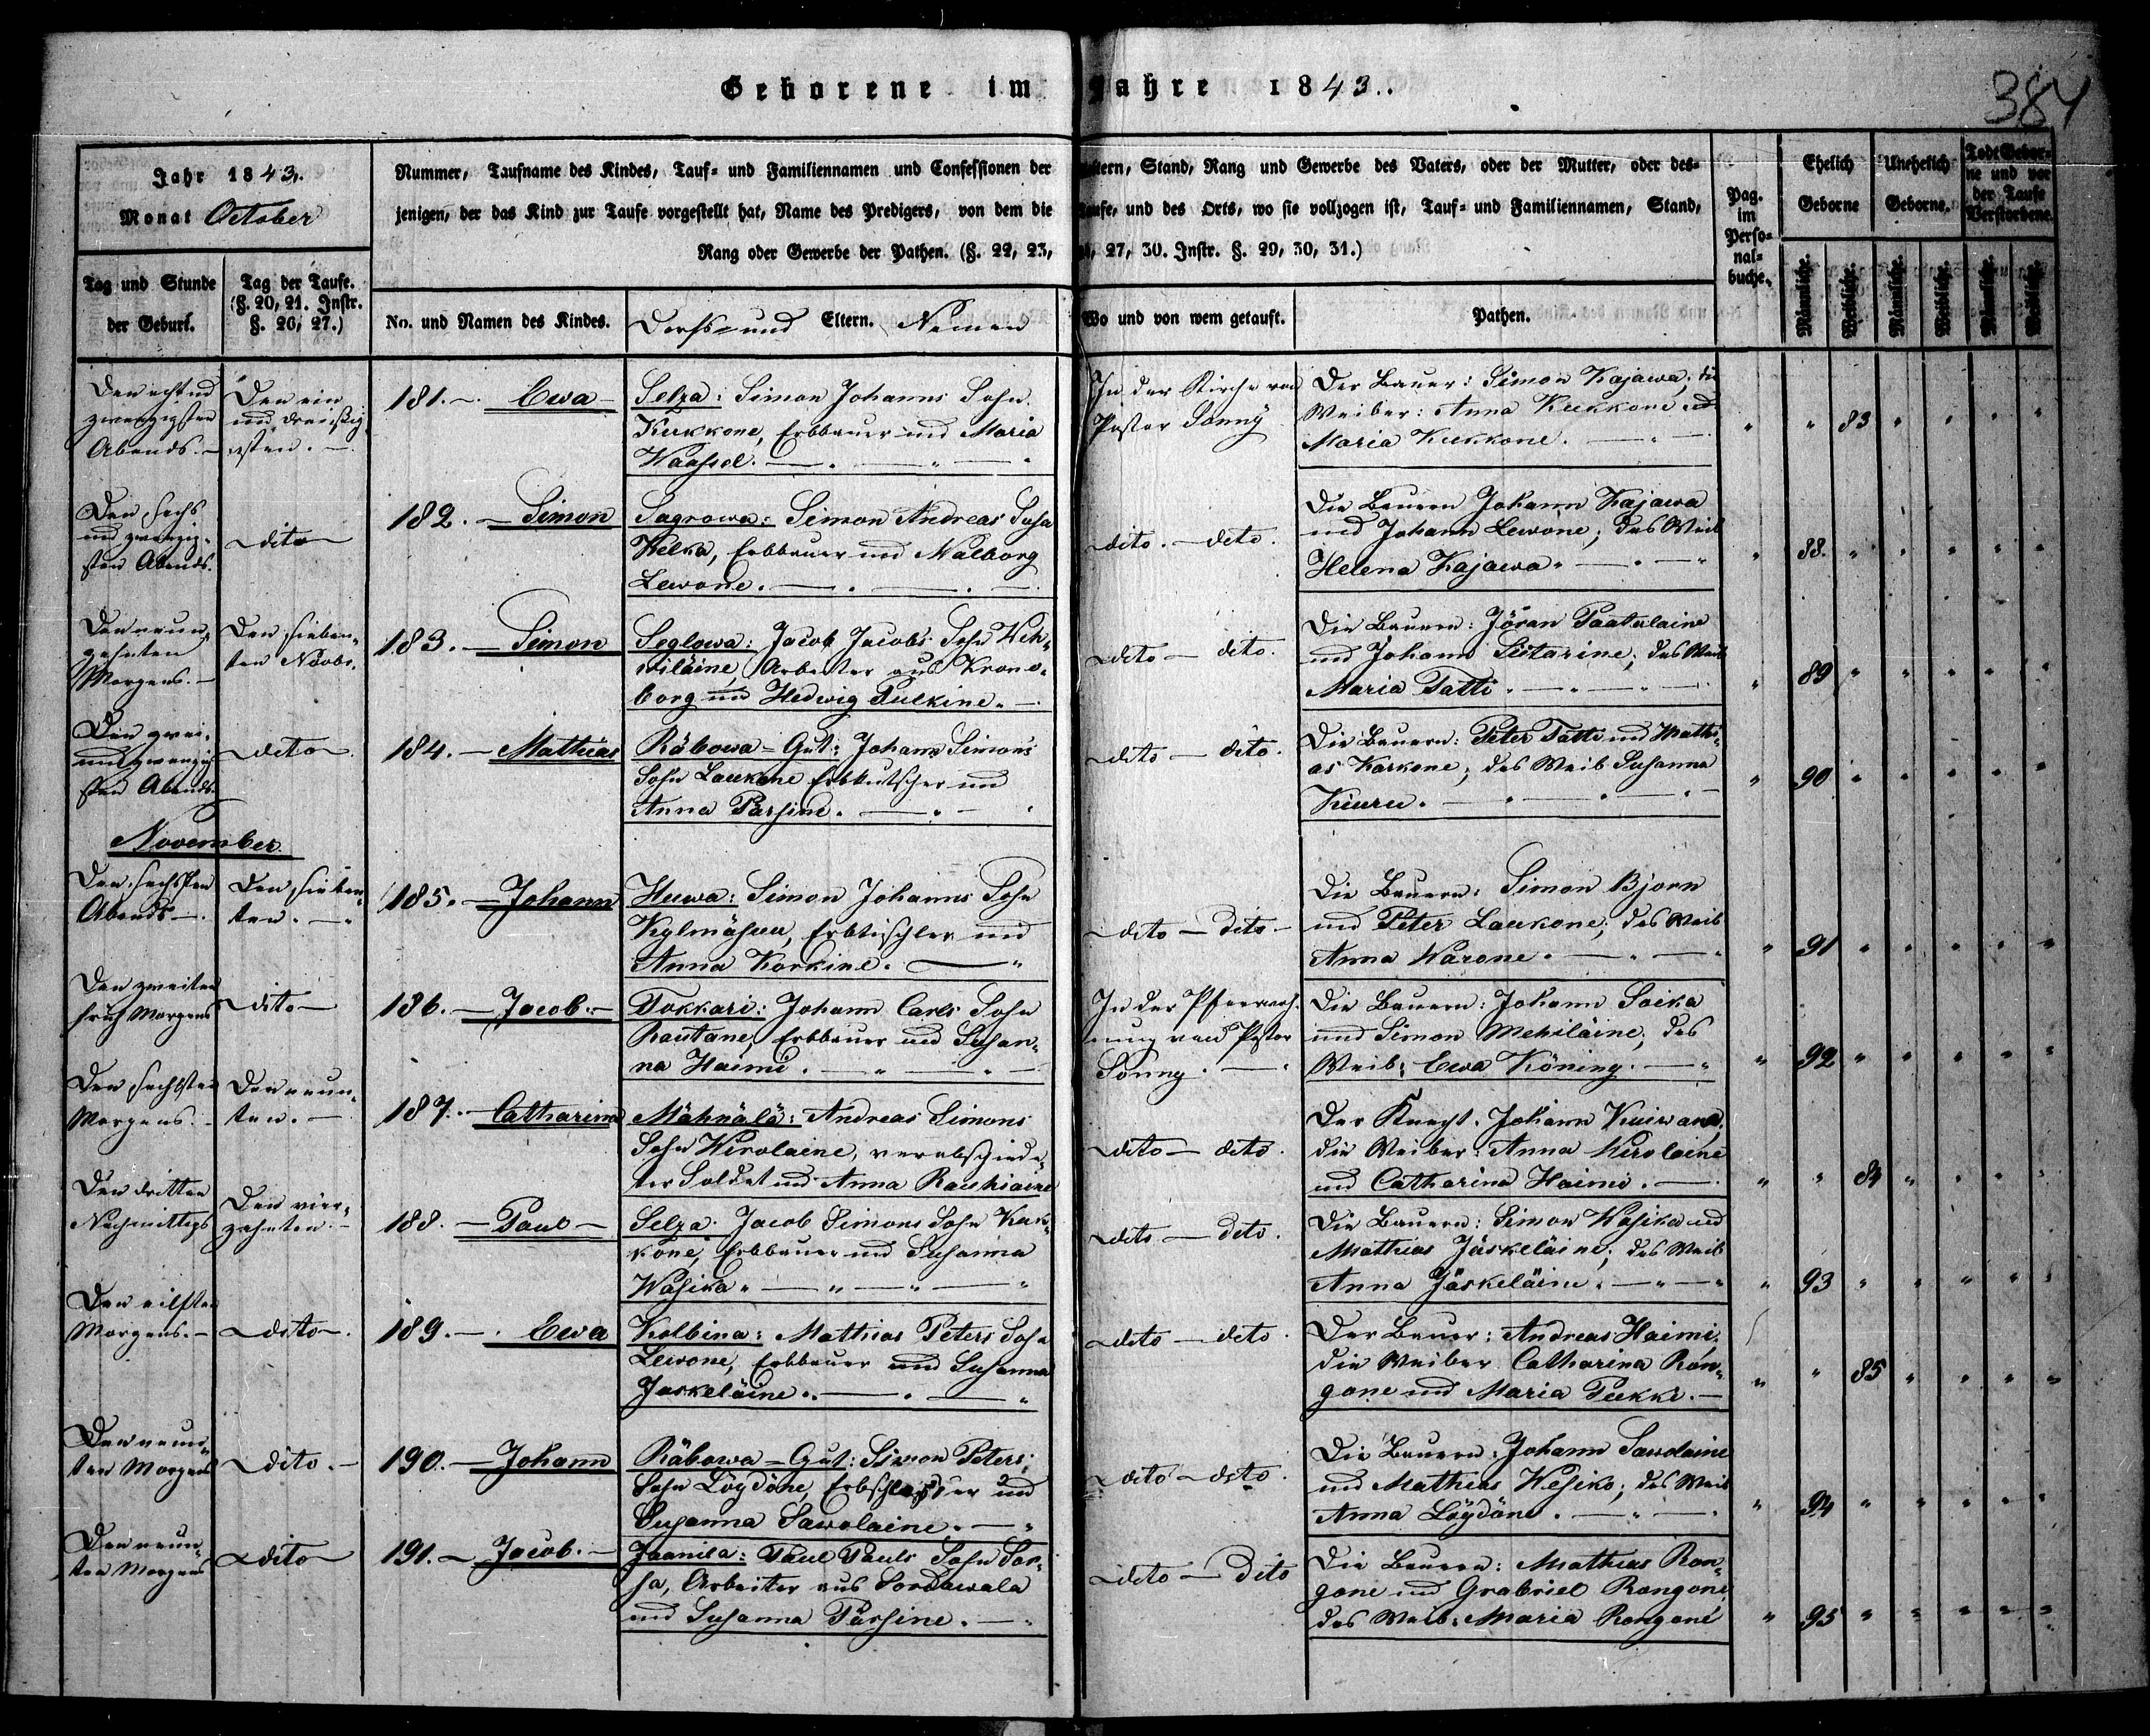 Geborene im Jahre 1843.
384
Jahr 1843.
Monat October
Nummer, Taufname des Kindes, Tauf- und Familiennamen und Confessionen der Eltern, Stand, Rang und Gewerbe des Vaters, oder der Mutter, oder des-
jenigen, der das Kind zur Taufe vorgestellt hat, Name des Predigers, von dem die Taufe, und des Orts, wo sie vollzogen ist, Tauf- und Familiennamen, Stand,
Rang oder Gewerbe der Pathen. (§. 22, 23, 27, 30. Instr. §. 29, 30, 31.)
Pag.
im
Perso-
nal-
buche.
Ehelich
Geborne
Unehelich
Geborne.
Todt Gebor-
ne und vor
der Taufe
Verstorbene.
Tag und Stunde
der Geburt.
Tag der Taufe.
(§. 20, 21. Instr.
§. 26, 27.)
No. und Namen des Kindes.
Dorfs- und Eltern. Namen
Wo und von wem getauft.
Pathen.
Männliche.
Weibliche.
Männliche.
Weibliche.
Männliche.
Weibliche.
Den acht und
zwanzigsten
Abends.
Den ein
und dreißig-
sten.
181. Ewa
Selza: Simon Johanns Sohn
Kukkone, Erbbauer und Maria
In der Kirche von
Pastor Sonny
Der Bauer: Simon Kajawa; die
Weiber: Anna Kukkone und
Maria Kukkone.
83
Den sechs
und zwanzig-
sten Abends.
dito
182. Simon
Sagrowa: Simon Andreas Sohn
Kelka, Erbbauer und Walborg
Lewone.
dito. dito.
Die Bauern Johann Kajawa
und Johann Lewone; das Weib
Helena Kajawa
88.
Den neun-
zehnten
Morgens.
Den sieben-
ten Novbr.
183. Simon
Seglowa: Jacob Jacobs Sohn Weh-
wiläine, Arbeiter aus Krono-
borg und Hedwig Pulkine.
dito dito.
Die Bauern: Jöran Paatalaine
und Johann Siitarine; das Weib
Maria Tatti.
89
Den zwei-
und zwanzig-
sten Abends
dito
184. Mathias
Räbowa-Gut: Johann Simons
Sohn Laukone Erbkutscher und
Anna Parsine.
dito dito.
Die Bauern: Peter Tatti und Mathi-
as Karkone; das Weib Susanna
Kiuru.
90
November
Den sechsten
Abends
Den sieben-
ten.
185. Johann
Huwa: Simon Johanns Sohn
Kylmäsuu, Erbtischler und
Anna Korkine.
dito dito
Die Bauern: Simon Bjorn
und Peter Laukone; das Weib
Anna Warone.
91
Den zweiten
früh Morgens
dito
186. Jacob.
Tokkari: Johann Carls Sohn
Rautane, Erbbauer und Susan-
na Haimi.
In der Pfarrwoh-
nung von Pastor
Sonny.
Die Bauern: Johann Soika
und Simon Mehiläine; das
Weib: Ewa Köning.
92
Den sechsten
Morgens.
Den neun-
ten.
187. Catharina
Mähnälä: Andreas Simons
Sohn Wirolaine, verabschiede-
ter Soldat und Anna Rauhiaine
dito dito.
Der Knecht: Johann Kuiwane,
die Weiber: Anna Wirolaine
und Catharina Haimi.
84
Den dritten
Nachmittags
Den vier-
zehnten.
188. Paul
Selza. Jacob Simons Sohn Kuk-
kone, Erbbauer und Susanna
Wasika
dito dito.
Die Bauern: Simon Wasika und
Mathias Jäskeläine; das Weib
Anna Jäskeläine.
93
Den eilften
Morgens.
dito.
189. Ewa
Kolbina: Mathias Peters Sohn
Lewone, Erbbauer und Susanna
Jaskeläine.
dito dito.
Der Bauer: Andreas Haimi.
die Weiber Catharina Rön-
gone und Maria Pukki.
85
Den neun-
ten Morgens
dito.
190. Johann
Räbowa-Gut: Simon Peters
Sohn Löydöne, Erbschlosser und
Susanna Sawolaine.
dito dito.
Die Bauern: Johann Sawolaine
und Mathias Wesiko; das Weib
Anna Löydöne.
94
Den neun-
ten Morgens
dito
191. Jacob.
Jaanila: Paul Pauls Sohn Sor-
sa, Arbeiter aus Sordawala
und Susanna Parsine.
dito dito
Die Bauern: Mathias Ron-
gone und Grabriel Rongone,
das Weib: Maria Rongone
95